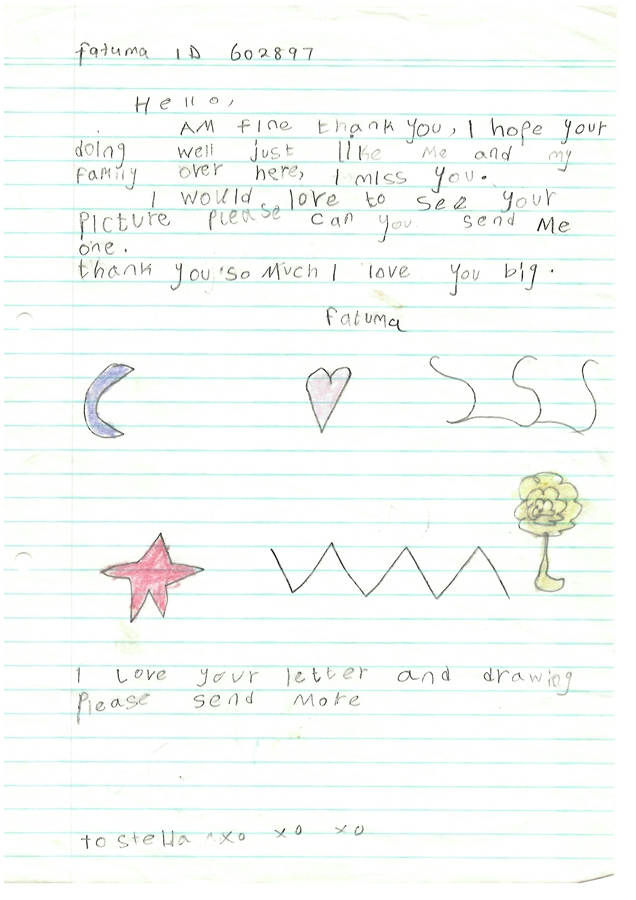 fatuma ID 602897
Hello,
AM fine thank you, I hope your
doing well just like Me and my
family over here, I miss you.
I would love to see your
Picture please can you send Me
one.
thank you so Much I love you big.
fatuma
I Love your letter and drawing
Please send More
to stella xo xo xo